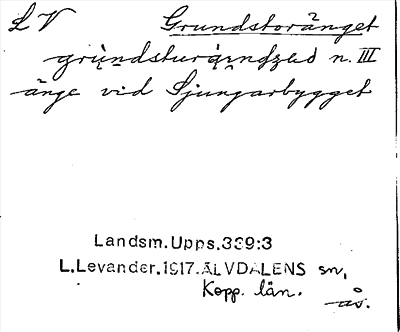 LV Grundstoränget
grùndsturą̀ŋdʒeð n. III
änge vid Ljungarbygget
Landsm.Upps.339:3
L.Levander.1917.ÄLVDALENS sn,
Kopp. län.
av.